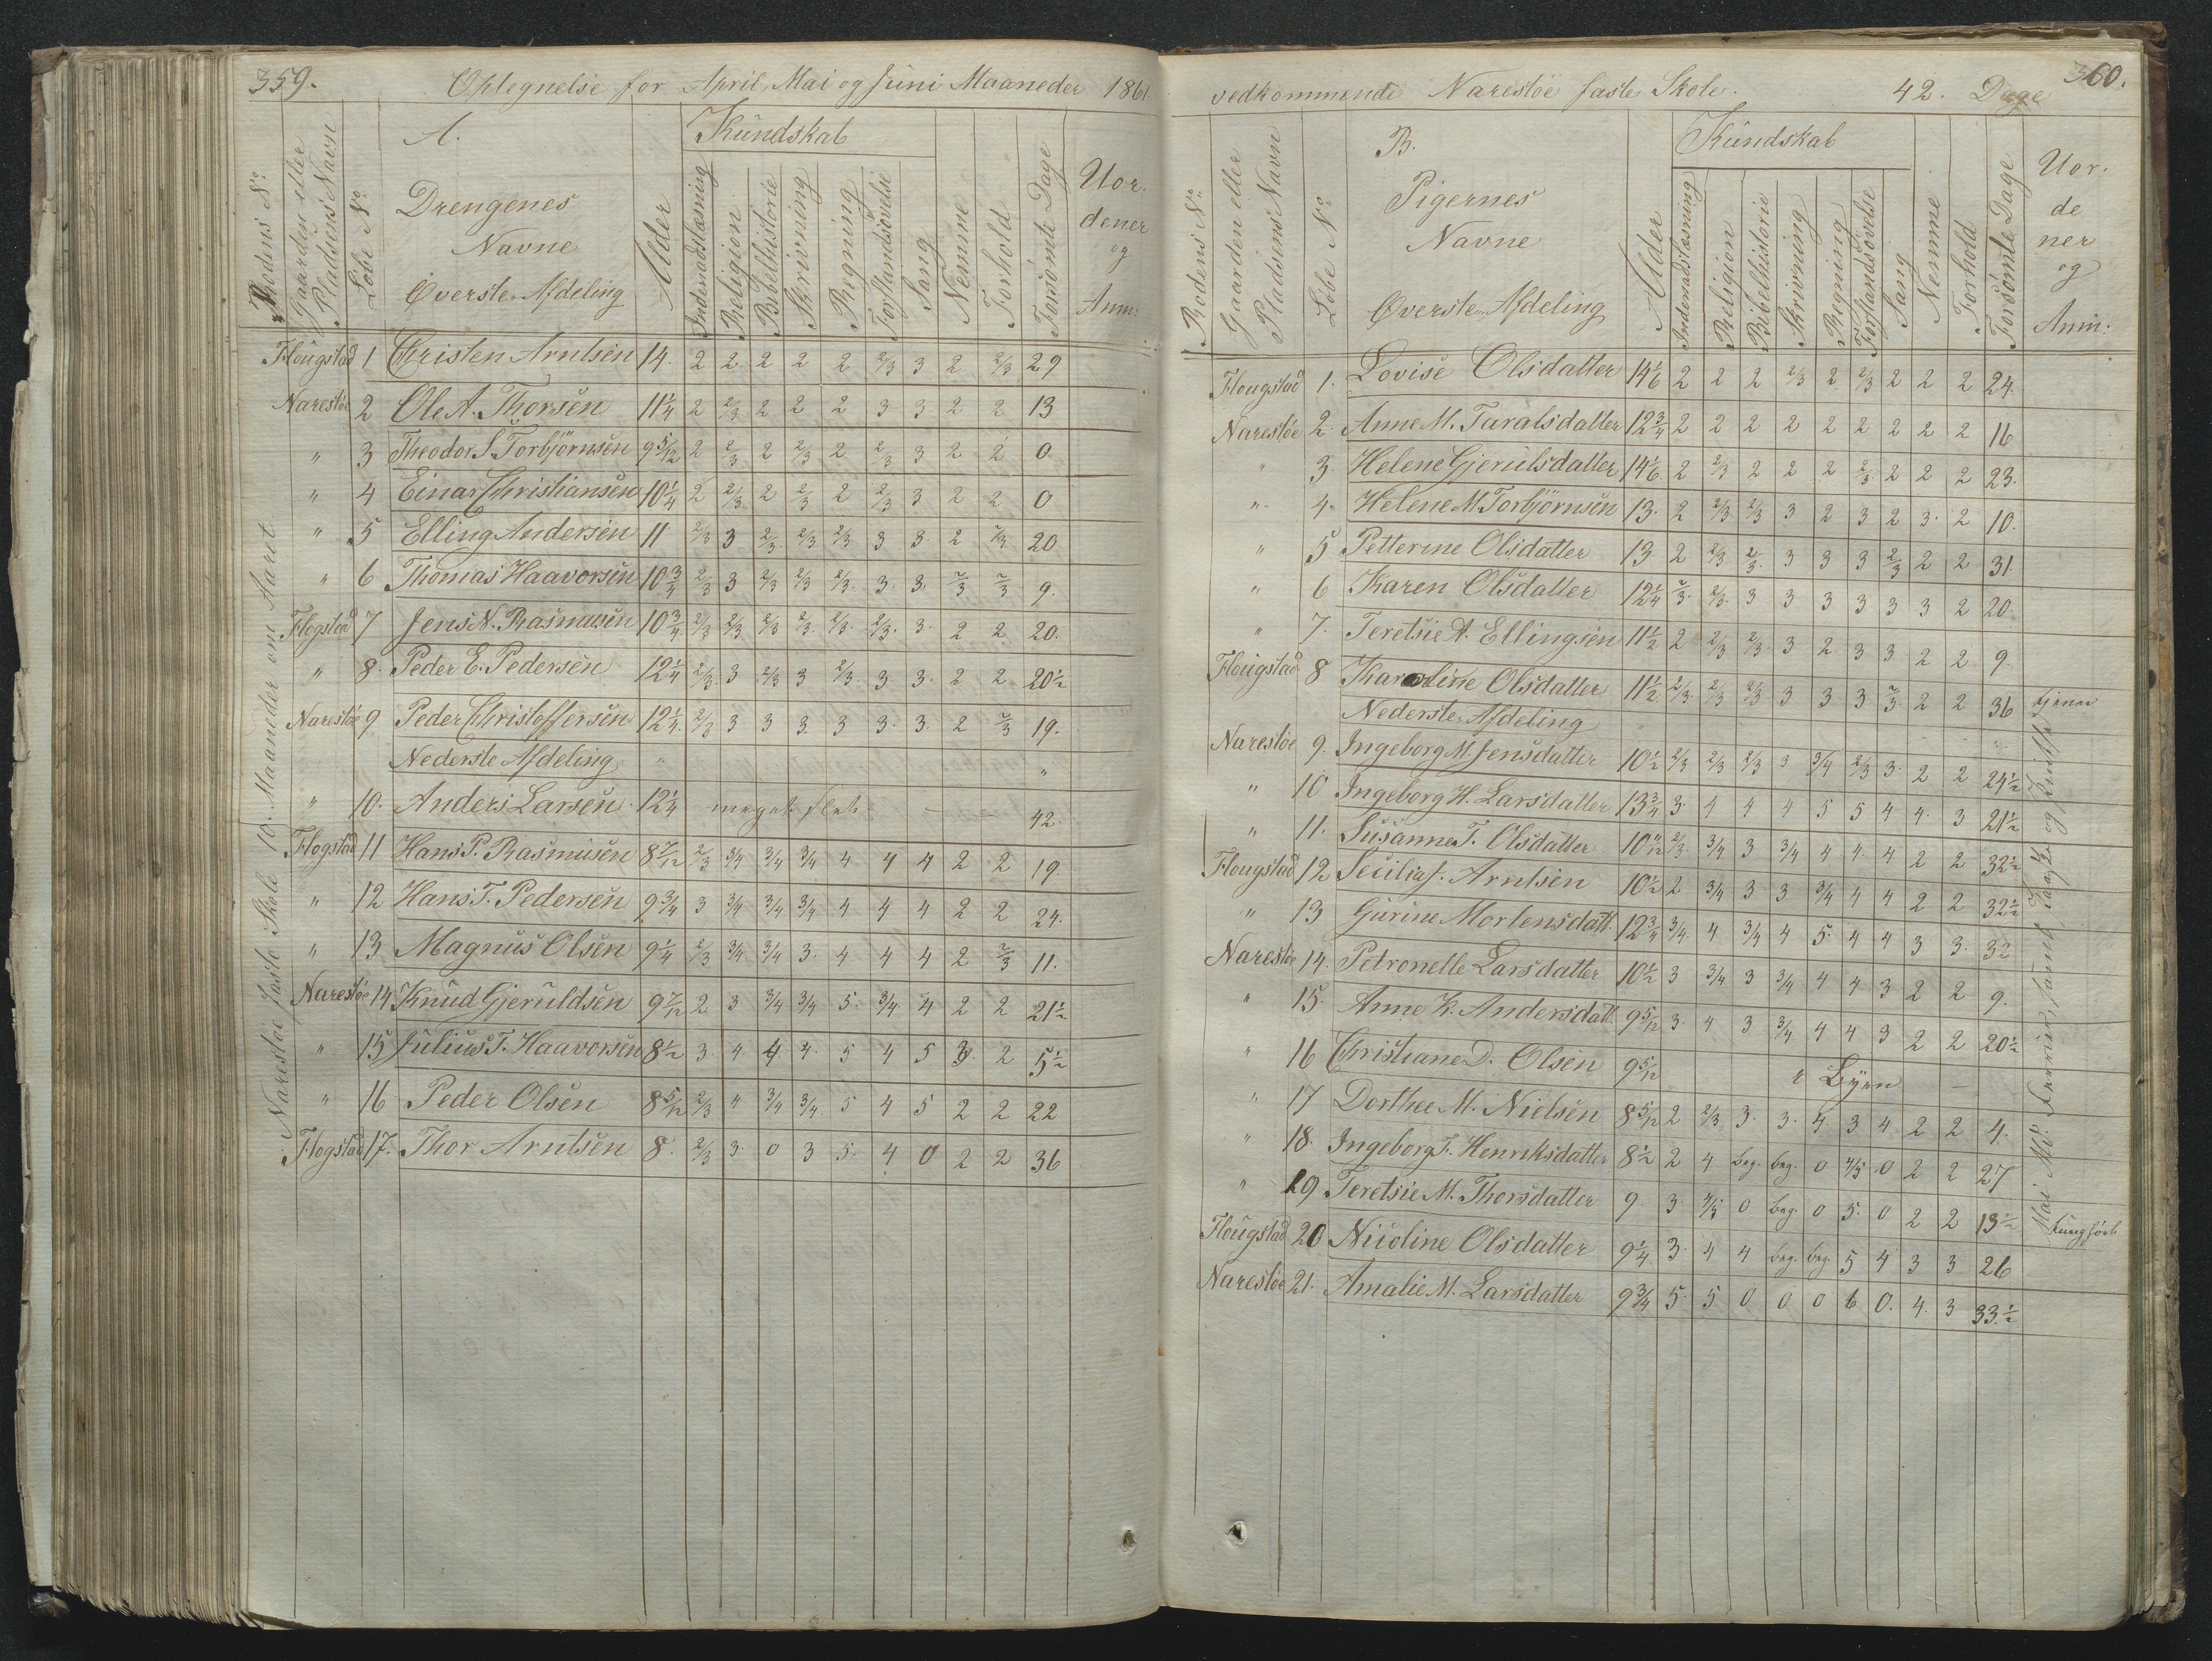 359.
Optegnelse for April, Mai og Juni Maaneder 1861.
Rodens No.
Gaarden eller Pladsens Navn
Løbe No.
A.
Drengenes
Navne
Øverste Afdeling
Alder
Kundskab
Indenadslæsning
Religion
Bibelhistorie
Skrivning
Regning
Forstandsøvelse
Sang
Nemme
Forhold
Forsømte Dage
Uor-
dener
og
Anm:
Flougstad 1 Christen Arntsen 14. 2 2 2 2 2 2/3 3 2 2/3 29
Narestøe 2 Ole A. Thorsen 11 1/4 2 2/3 2 2 2 3 3 2 2 13
" 3 Theodor S. Torbjørnsen 9 5/12 2 2/3 2 2/3 2 2/3 3 2 2 0
" 4 Einar Christiansen 10 1/4 2 2/3 2 2/3 2 2/3 3 2 2 0
" 5 Elling Andersen 11 2/3 3 2/3 2/3 2/3 3 3 2 2/3 20
" 6 Thomas Haavorsen 10 3/4 2/3 3 2/3 2/3 2/3 3. 3. 2/3 2/3 9.
Flogstad 7 Jens N. Rasmusen 10 3/4 2/3 2/3 2/3 2/3 2/3 2/3 3. 2 2 20.
" 8. Peder E. Pedersen 12 1/4 2/3 3 2/3 3 2/3 3 3. 2 2 20 1/2
Narestøe 9 Peder Christoffersen 12 1/4 2/3 3 3 3 3 3. 3. 2 2/3 19.
Nederste Afdeling
" 10. Anders Larsen 12 1/4 meget slet 42.
Flogstad 11 Hans P. Rasmusen 8 7/12 2/3 3/4 3/4 3/4 4 4 4 2 2 19
" 12 Hans T. Pedersen 9 3/4 3 3/4 3/4 3/4 4 4 4 2 2 24.
" 13 Magnus Olsen 9 1/4 2/3 3/4 3/4 3. 4 4 4 2 2/3 11.
Narestøe 14 Knud Gjeruldsen 9 7/12 2 3 3/4 3/4 5. 3/4 4 2 2 21 1/2
" 15 Julius T. Haavorsen 8 1/2 3. 4. 4 4. 5 4 5 3. 2 5 1/2
" 16 Peder Olsen 8 5/12 2/3 " 3/4 3/4 5 4 5 2 2 22
Flogstad 17. Thor Arntsen 8. 2/3 3. 0 3 5. 4 0 2 2 36
Narestøe faste Skole 10. Maaneder om Aaret
360.
vedkommende Narestøe faste Skole. 42. Dage
Rodens No.
Gaarden eller Pladsens Navn
Løbe No.
B.
Pigernes
Navne
Øverste Afdeling
Alder
Kundskab
Indenadslæsning
Religion
Bibelhistorie
Skrivning
Regning
Forstandsøvelse
Sang
Nemme
Forhold
Forsømte Dage
Uor-
de
ner
og
Anm:
Flougstad 1. Lovise Olsdatter 14 1/6 2 2 2 2/3 2 2/3 2 2 2 24.
Narestøe 2. Anne M. Taralsdatter 12 3/4 2 2 2 2 2 2 2 2 2 16
" 3. Helene Gjerulsdatter 14 1/6 2 2/3 2 2 2 2/3 2 2 2 23.
" 4. Helene M. Torbjørnsen 13. 2 2/3 2/3 3 2 3 2 3. 2 10.
" 5 Petterine Olsdatter 13 2 2/3 2/3 3 3 3 2/3 2 2 31.
" 6 Karen Olsdatter 12 1/4 2/3 2/3 3 3 3 3 3 3 2 20.
" 7. Teretsie A. Ellingsen 11 1/2 2 2/3 2/3 3 2 3 3 2 2 9
Flougstad 8 Karoline Olsdatter 11 1/2 2/3 2/3 2/3 3 3 3 2/3 2 2 36
Nederste Afdeling
Narestøe 9. Ingeborg M. Jensdatter 10 1/2 2/3 2/3 2/3 3 3/4 2/3 3. 2 2 24 1/2
" 10 Ingeborg H. Larsdatter 13 3/4 3. 4 4 4 5 5 4 4. 3 21 1/2
" 11. Susanne T. Olsdatter 10 11/12 2/3 3/4 3 3/4 4 4. 4 2 2 32 1/2
Flougstad 12 Secilia J. Arntsen 10 1/2 2 3/4 3 3 3/4 4 4 2 2 32 1/2
" 13 Gurine Mortensdatt. 12 3/4 3/4 4 3/4 4 5. 4 4 3 3. 32
Narestøe 14. Petronelle Larsdatter 10 1/2 3 3/4 3 3/4 4 4 3 2 2 9.
" 15. Anne K. Andersdatt. 9 5/12 3. 4 3 3/4 4 4 3 2 2 20 1/2
" 16 Christiane D. Olsen 9 5/12 i Byen
" 17 Dorthee M. Nielsen 8 5/12 2 2/3 3. 3. 4 3 4 2 2 4.
" 18. Ingeborg T. Henriksdatter 8 1/2 2 4 beg. beg. 0 4/5 0 2 2 27
" 19 Teretsie M. Thorsdatter 9. 3. 4/5 0 beg. 0 5. 0 2 2 13 1/2
Flougstad 20 Nicoline Olsdatter 9 1/4 3. 4 4 beg. beg. 5 4 3 3 26
Narestøe 21. Amalie M. Larsdatter 9 3/4 5. 5 0 0 0 6 0. 4. 3 33 1/2
tjener
tunghørt
Mai Md. Ferrier, samt